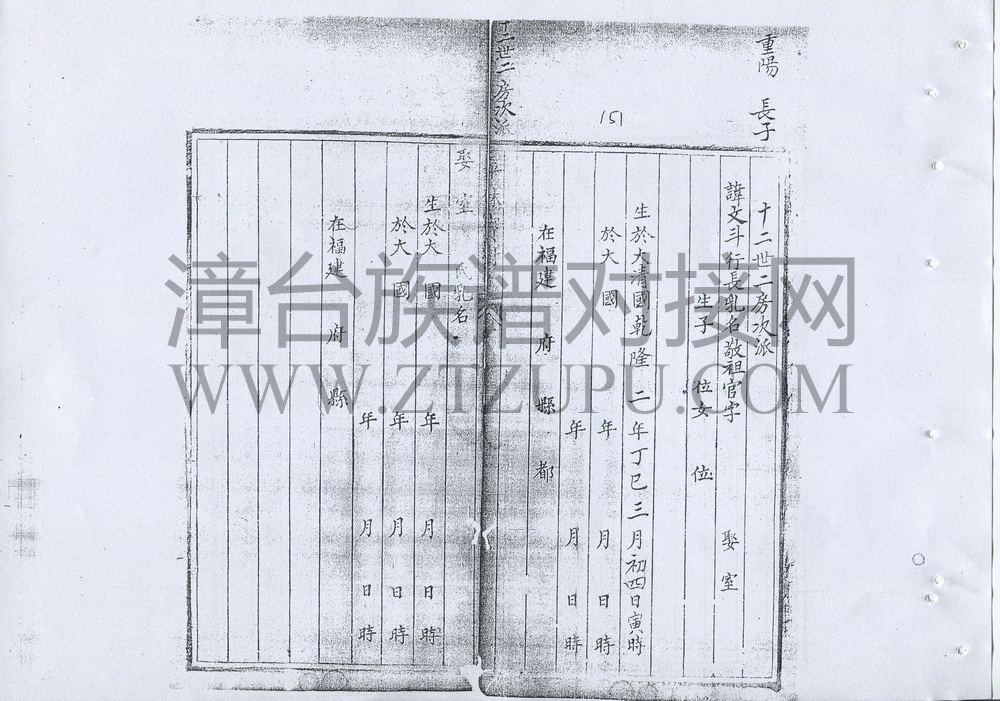 重陽 長子
151
十二世二房次派
諱文斗行長乳名敬祖官字 娶室
生子 位女 位
生於大清國乾隆二年丁巳三月初四日寅時
於大 國 年 月 日 時
年 月 日 時
在福建 府 縣 都
十二世二房次派
娶室 氏乳名
生於大 國 年 月 日 時
於大 國 年 月 日 時
年 月 日 時
在福建 府 縣
漳台族谱对接网
WWW.ZTZUPU.COM